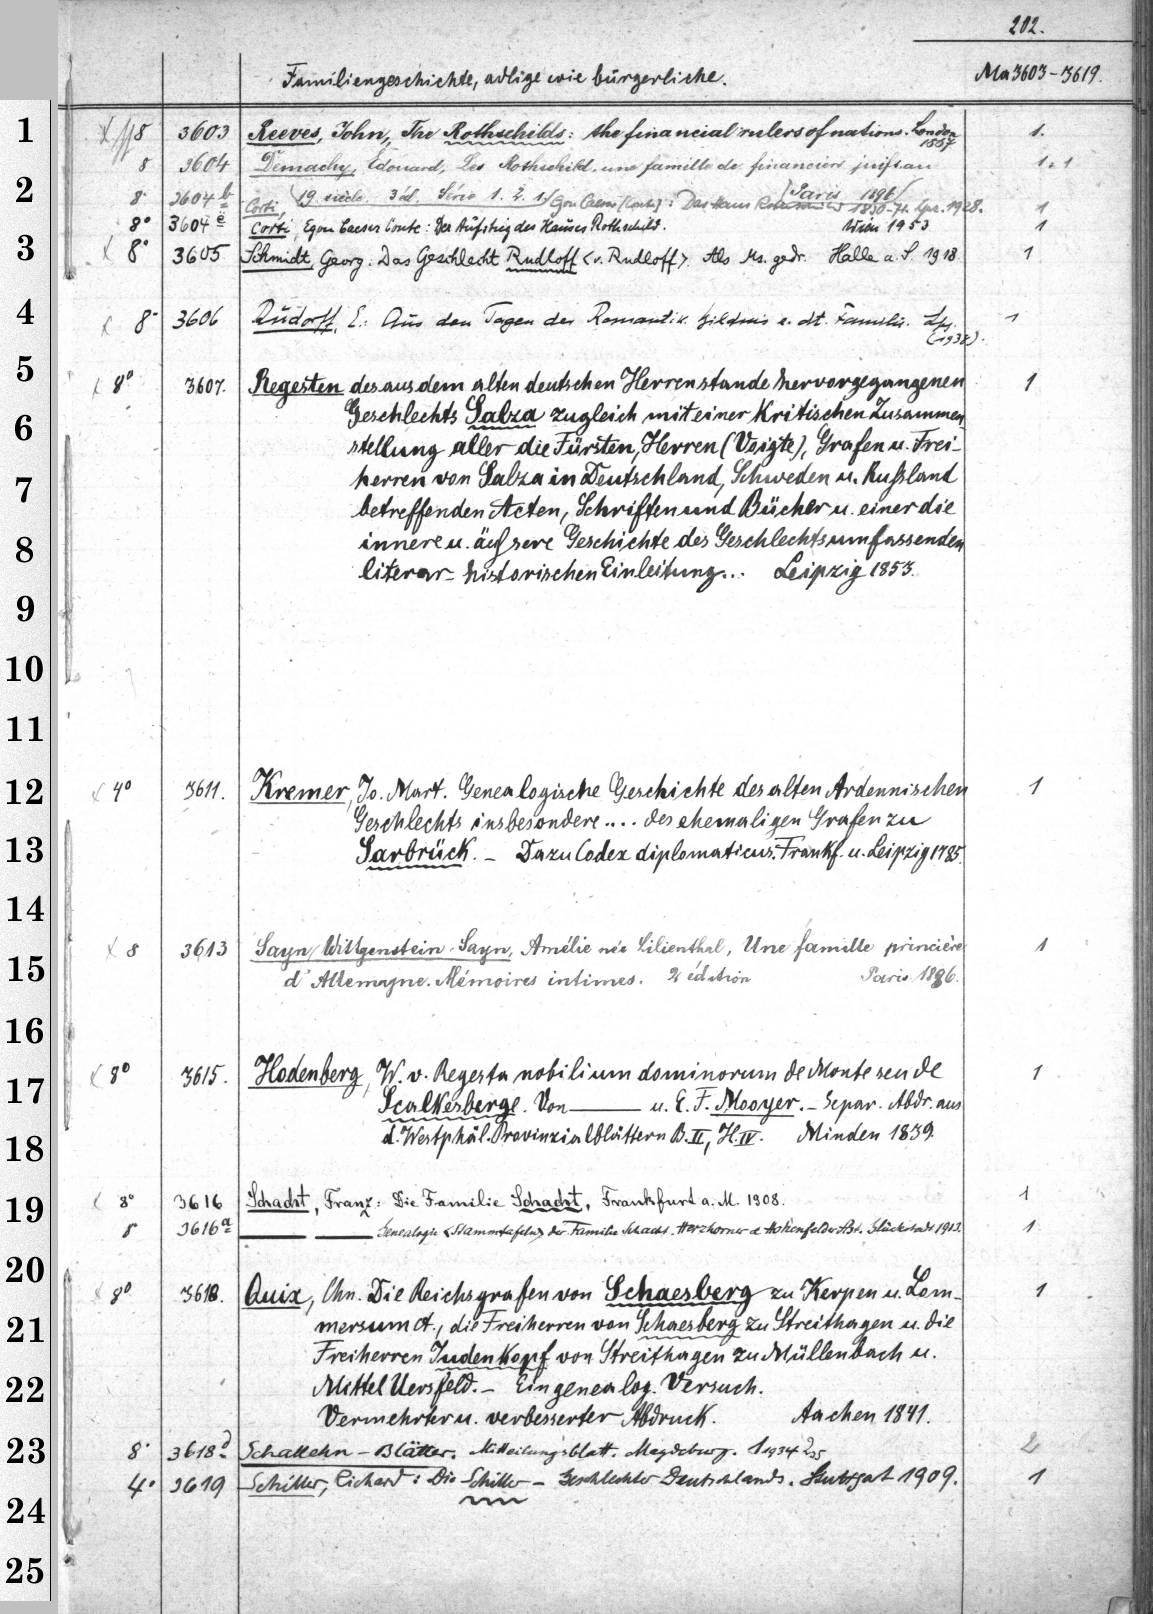 202.
Familiengeschichte, adlige wie bürgerliche. Ma 3603-3619.
1 8 3603 Reeves, John, The Rothschilds: the financial rulers of nations. London 1. 1887
8 3604 Demachy, Edouard, Les Rothschild, une famille de financiers juifs au 1.1
2 19. siècle. 3 éd. Série 1. Paris 1896
8° 3604 b Corti, Egon Caesar (Conte): Das Haus Rothschild 1830-71. Lpz. 1928. 1
8° 3604 c Corti, Egon Caesar Conte: Der Aufstieg des Hauses Rothschild. Wien 1953 1
3 x 8° 3605 Schmidt, Georg. Das Geschlecht Rudloff <v. Rudloff>. Als Ms. gedr. Halle a. S. 1918. 1
4 x 8° 3606 Rudorff, E.: Aus den Tagen der Romantik. Bildnis e. dt. Familie. Lpz. 1
(1938).
5 x 8° 3607. Regesten des aus dem alten deutschen Herrenstande hervorgegangenen 1
6 Geschlechts Salza zugleich mit einer kritischen Zusammen-
stellung aller die Fürsten, Herren (Voigte), Grafen u. Frei-
7 herren von Salza in Deutschland, Schweden u. Rußland
betreffenden Acten, Schriften und Bücher u. einer die
8 innere u. äußere Geschichte des Geschlechts umfassenden
literar-historischen Einleitung... Leipzig 1853.
9
10
11
12 x 4° 3611. Kremer, Jo. Mart. Genealogische Geschichte des alten Ardennischen 1
Geschlechts insbesondere .... des ehemaligen Grafen zu
13 Sarbrück. - Dazu Codex diplomaticus. Frankf. u. Leipzig 1785.
14
x 8 3613 Sayn-Wittgenstein-Sayn, Amélie née Lilienthal, Une famille princière 1
15 d'Allemagne. Mémoires intimes. 2 édition Paris 1886.
16
17 x 8° 3615. Hodenberg, W. v. Regesta nobilium dominorum de Monte seu de 1
Scalkesberge. Von ——— u. E. F. Mooyer. - Separ. Abdr. aus
18 d. Westphäl. Provinzialblättern B. II, H. IV. Minden 1839.
19 x 8° 3616 Schacht, Franz: Die Familie Schacht, Frankfurt a. M. 1908. 1
8 3616 a —— —— Genealogie <Stammtafeln> der Familie Schacht. Herzhorner u. Hohenfelder Glückstadt 1913. 1
20 x 8° 3618. Quix, Chn. Die Reichsgrafen von Schaesberg zu Kerpen u. Lom- 1
21 mersum &., die Freiherren von Schaesberg zu Streithagen u. die
Freiherren Judenkopf von Streithagen zu Müllenbach u.
22 Mittel Uersfeld. - Ein genealog. Versuch.
Vermehrter u. verbesserter Abdruck. Aachen 1841.
23 8° 3618 d Schattehn-Blätter. Mitteilungsblatt. Magdeburg. 1 1934 2 35 2
4° 3619 Schiller, Richard: Die Schiller-Geschlechter Deutschlands. Stuttgart 1909. 1
24
25